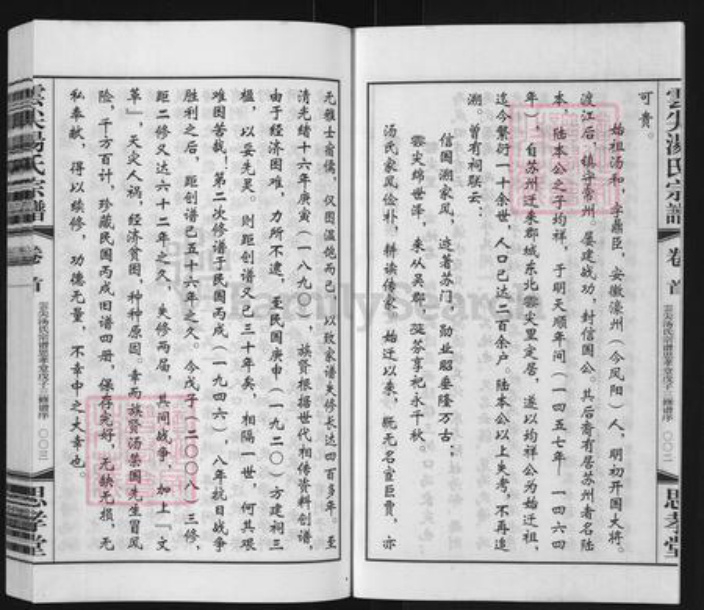 雲尖湯氏宗譜
卷首
云尖汤氏宗谱思孝堂戊子三修谱序
〇〇二
思孝堂
可贵。
始祖汤和,字鼎臣,安徽濠州(今凤阳)人,明初开国大将。
渡江后,镇守常州。屡建战功,封信国公。其后裔有居苏州者名陆
本,陆本公之子均祥,于明天顺年间(一四五七年——一四六四
年)自苏州迁来郡城东北云尖里定居,遂以均祥公为始迁祖,
迄今繁衍二十余世,人口已达二百余户。陆本公以上失考,不再追
溯。曾有祠联云:
信国溯家风,迹著苏门,勋业昭垂隆万古;
云尖绵世泽,来从吴郡,延芬享祀永千秋。
汤氏家风俭朴,耕读传家,始迁以来,既无名宦巨贾,亦
无雅士宿儒,仅图温饱而已,以致家谱失修长达四百多年。至
清光绪十六年庚寅(一八九〇),族贤根据世代相传资料创谱,
由于经济困难,力所不逮,至民国庚申(一九二〇)方建祠三
楹,以妥先灵。则距创谱又已三十年矣,相隔一世,何其艰
难困苦哉!第二次修谱于民国丙戌(一九四六),八年抗日战争
胜利之后,距创谱已五十六年之久。今戊子(二〇〇八)三修,
距二修又达六十二年之久,失修两届,其间战争,加上「文
革」,天灾人祸,经济贫困,种种原因。幸而族贤汤荣国先生冒风
险,千方百计,珍藏民国丙戌旧谱四册,保存完好,无缺无损,无
私奉献,得以续修,功德无量,不幸中之大幸也。
雲尖湯氏宗譜
卷首
云尖汤氏宗谱思孝堂戊子三修谱序
〇〇三
思孝堂
FamilySearch